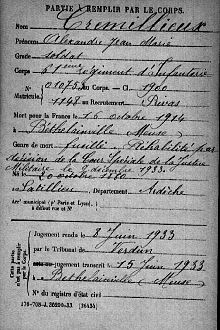 PARTIE À REMPLIR PAR LE CORPS.
Nom Cremillieux
Prénoms Alexandre Jean Marie
Grade soldat
Corps 61ème régiment d'Infanterie
N° 01073 au Corps. — Cl. 1900
Matricule. 1148 au Recrutement Privas
Mort pour la France le 16 octobre 1914
à Béthelainville Meuse
Genre de mort fusillé Réhabilité par
décision de la Cour Spéciale de Justice
Militaire le décembre 1933.
Né le octobre 1880
à Satillieu Département Ardèche
Arr¹ municipal (pʳ Paris et Lyon),
à défaut rue et N°
Cette partie
n'est pas à remplir
par le Corps.
Jugement rendu le 8 Juin 1933
par le Tribunal de Verdun
jugement transcrit le 15 Juin 1933
à Béthelainville (Meuse)
N° du registre d'état civil
(26434)